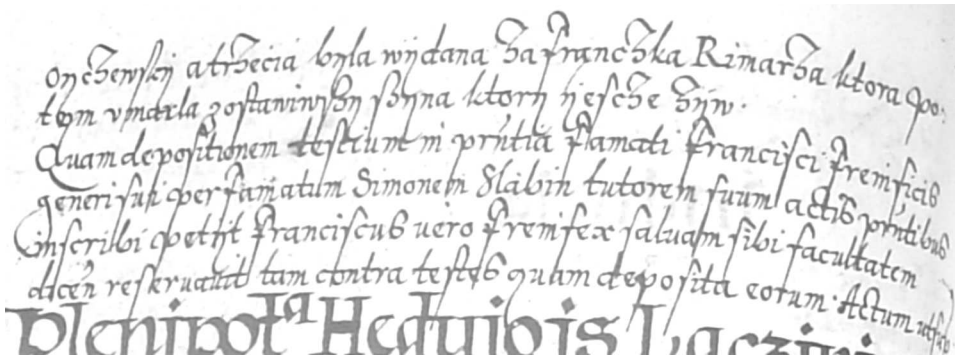 onczewskij a trzecia byla wydana za Franczka Rimarza ktora po:
tym vmarla zostawiwszy syna ktory ijescze zyw.
Quam depositionem testium in prntia famati Francisci Fremificis
generi sui per famatum Simonem Slabin tutorem suum actis prntibus
inscribi petijt Franciscus vero Fremifex salvam sibi facultatem
dicen reservavit tam contra testes quam deposita eorum. Actum
Plenipotta Hedvigis